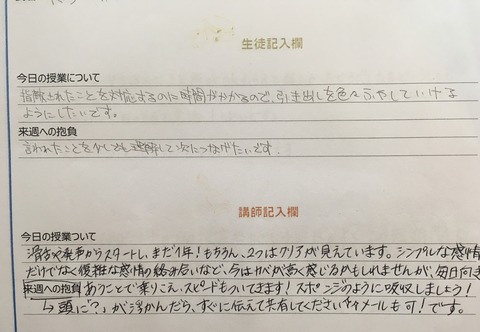 生徒記入欄
今日の授業について
指摘されたことを対応するのに時間がかかるので、引き出しを色々ふやしていける
ようにしたいです。
来週への抱負
言われたことを少しでも理解して次につなげたいです。
講師記入欄
今日の授業ついて
滑舌や発声からスタートし、まだ1年!もちろん、2つはクリアが見えています。シンプルな感情
だけでなく複雑な感情の絡み合いなど、今はカベが高く感じるかもしれませんが、毎日向き
来週への抱負 あうことで乗りこえ、スピードもついてきます!スポンジのように吸収しましょう!
頭に"?"が浮かんだら、すぐに伝えて共有してください メールも可!です。